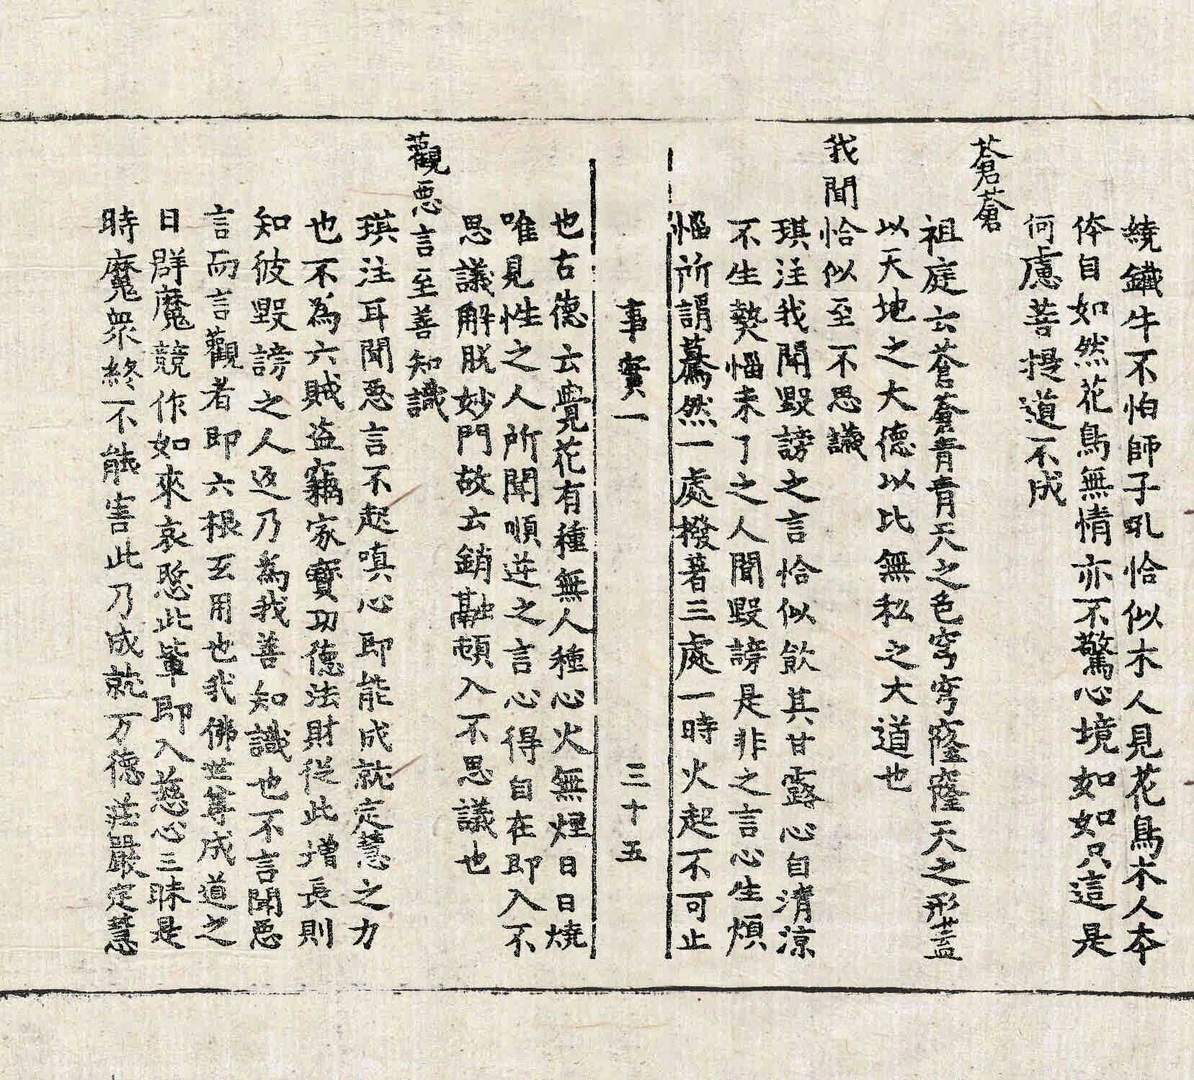 繞鐵牛不怕師子吼恰似木人見花鳥木人本
体自如然花鳥無情亦不驚心境如如只這是
何慮菩提道不成
蒼蒼
祖庭云蒼蒼青青天之色穹穹窿窿天之形蓋
以天地之大德以比無私之大道也
我聞恰似至不思議
琪注我聞毀謗之言恰似飲其甘露心自清涼
不生熱惱未了之人聞毀謗是非之言心生煩
惱所謂驀然一處撥著三處一時火起不可止
事實一
三十五
也古德云覺花有種無人種心火無煙日日燒
唯見性之人所聞順逆之言心得自在即入不
思議解脫妙門故云銷融頓入不思議也
觀惡言至善知識
琪注耳聞惡言不起嗔心即能成就定慧之力
也不為六賊盜竊家寶功德法財從此增長則
知彼毀謗之人返乃為我善知識也不言聞惡
言而言觀者即六根互用也我佛世尊成道之
日群魔競作如來哀愍此輩即入慈心三昧是
時魔眾終不能害此乃成就万德莊嚴定慧